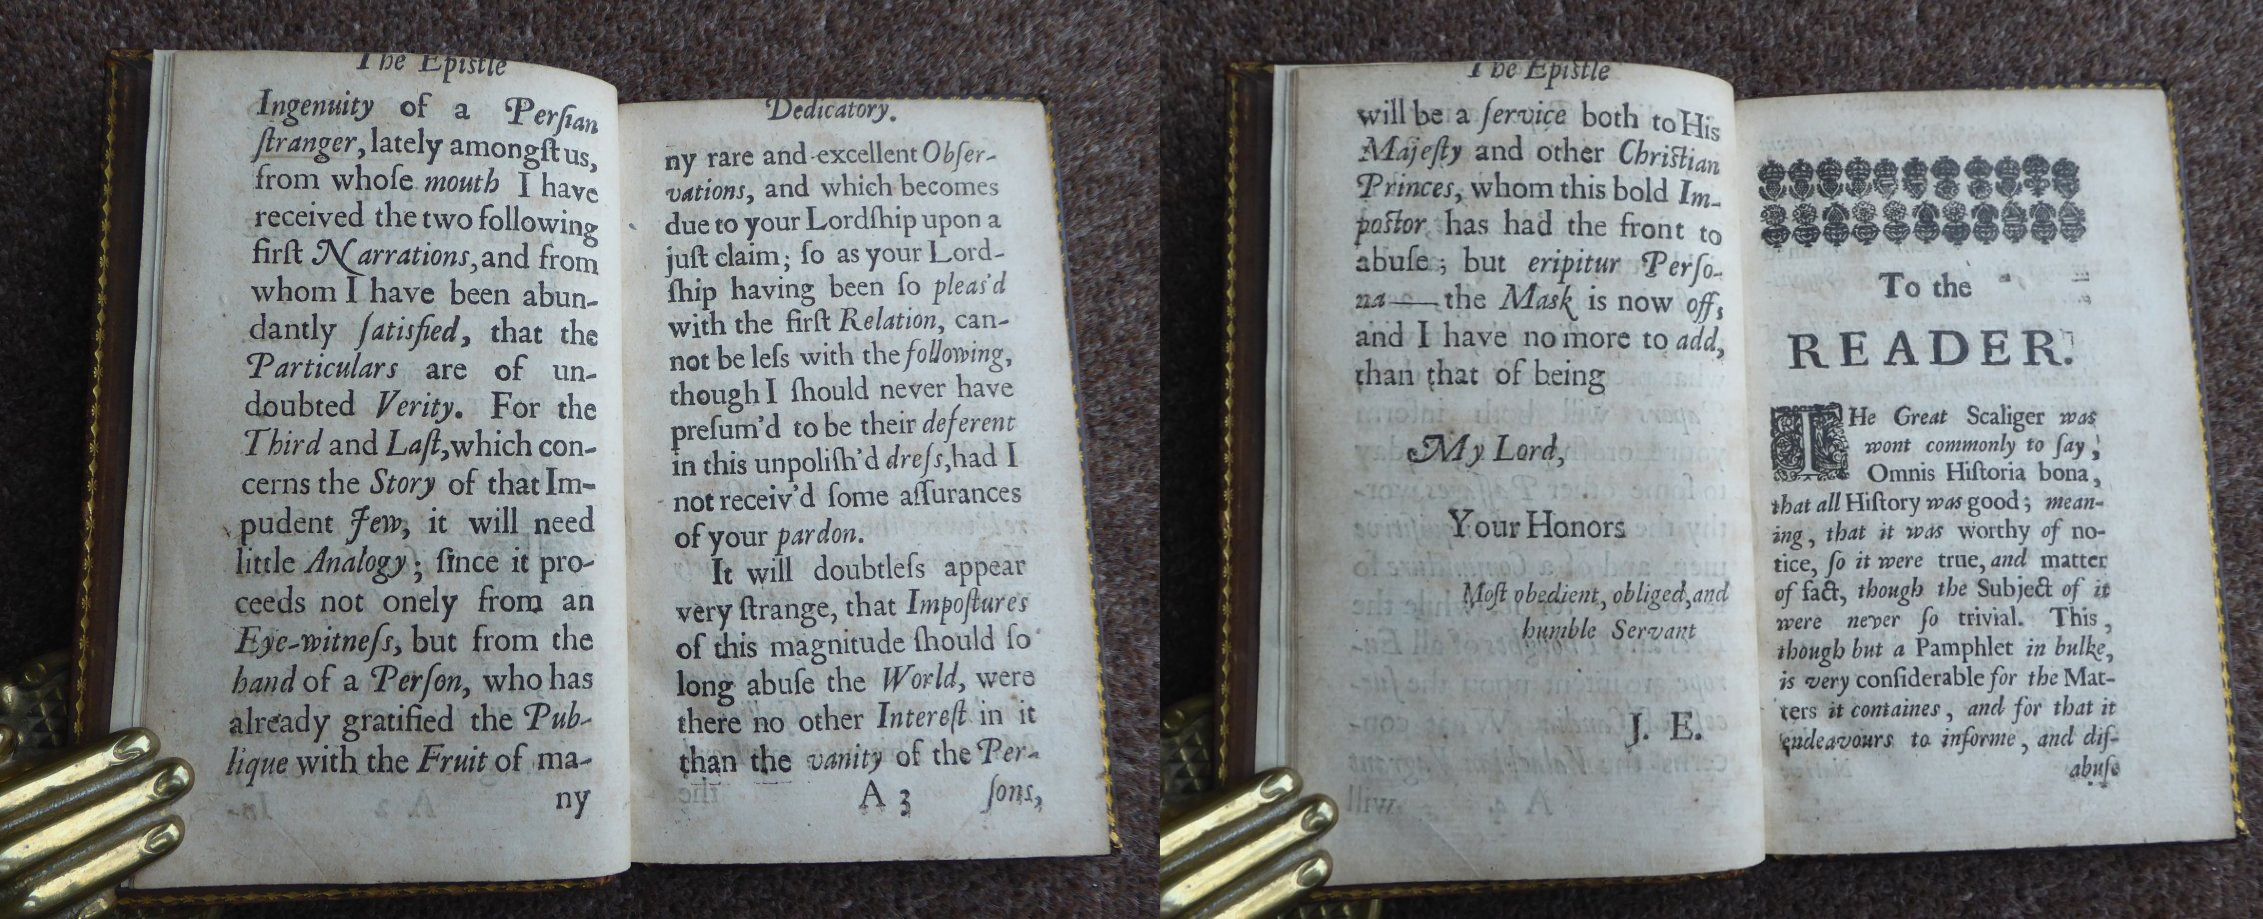 The Epistle
Ingenuity of a Perſian
ſtranger, lately amongſt us,
from whoſe mouth I have
received the two following
firſt Narrations, and from
whom I have been abun-
dantly ſatisfied, that the
Particulars are of un-
doubted Verity. For the
Third and Laſt, which con-
cerns the Story of that Im-
pudent Jew, it will need
little Analogy; ſince it pro-
ceeds not onely from an
Eye-witneſs, but from the
hand of a Perſon, who has
already gratified the Pub-
lique with the Fruit of ma-
ny
Dedicatory.
ny rare and excellent Obſer-
vations, and which becomes
due to your Lordſhip upon a
juſt claim; ſo as your Lord-
ſhip having been ſo pleas'd
with the firſt Relation, can-
not be leſs with the following,
though I ſhould never have
preſum'd to be their deferent
in this unpoliſh'd dreſs, had I
not receiv'd ſome aſſurances
of your pardon.
It will doubtleſs appear
very ſtrange, that Impoſtures
of this magnitude ſhould ſo
long abuſe the World, were
there no other Intereſt in it
than the vanity of the Per-
A 3 ſons,
The Epistle
will be a ſervice both to His
Majeſty and other Chriſtian
Princes, whom this bold Im-
poſtor has had the front to
abuſe; but eripitur Perſo-
na—— the Mask is now off;
and I have no more to add,
than that of being
My Lord,
Your Honors
Moſt obedient, obliged, and
humble Servant
J. E.
To the
READER.
THe Great Scaliger was
wont commonly to ſay,
Omnis Hiſtoria bona,
that all Hiſtory was good; mean-
ing, that it was worthy of no-
tice, ſo it were true, and matter
of fact, though the Subject of it
were never ſo trivial. This,
though but a Pamphlet in bulke,
is very conſiderable for the Mat-
ters it containes, and for that it
endeavours to informe, and diſ-
abuſe